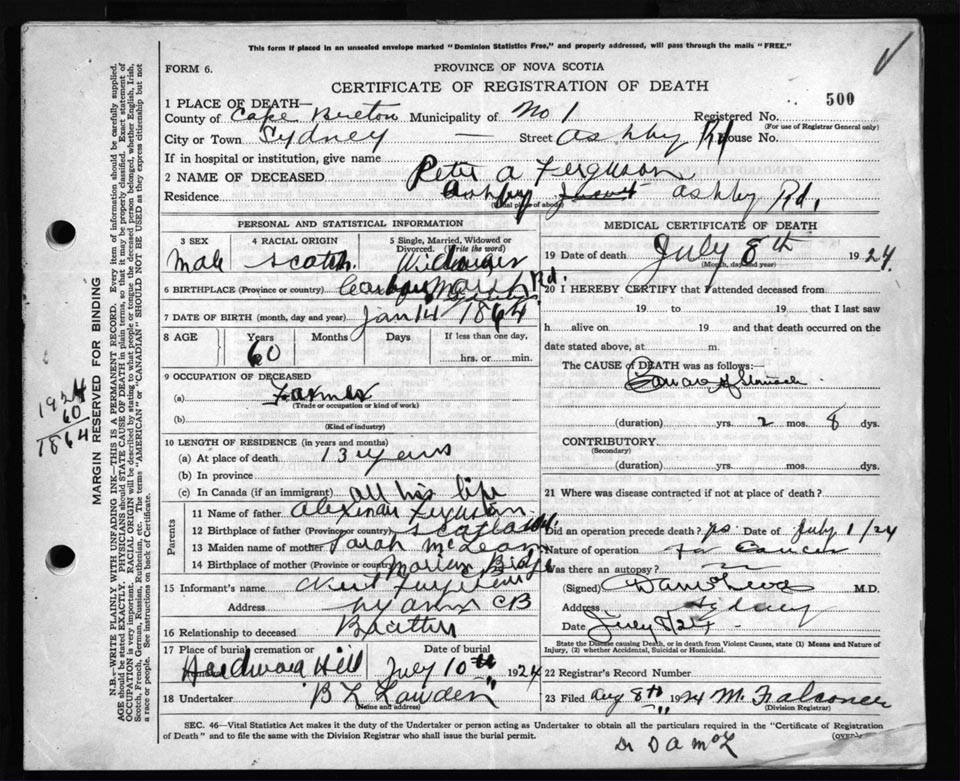 This form if placed in an unsealed envelope marked "Dominion Statistics Free," and properly addressed, will pass through the mails "FREE."
FORM 6.
PROVINCE OF NOVA SCOTIA
CERTIFICATE OF REGISTRATION OF DEATH
500
1 PLACE OF DEATH—
County of Cape Breton Municipality of No 1 Registered No.
(For use of Registrar General only)
City or Town Sydney — Street Ashby Rd House No.
If in hospital or institution, give name
2 NAME OF DECEASED Peter A Ferguson
Residence Ashby Ashby Rd.
(Usual place of abode)
PERSONAL AND STATISTICAL INFORMATION
3 SEX 4 RACIAL ORIGIN 5 Single, Married, Widowed or Divorced. (Write the word)
Male Scotch Widower
6 BIRTHPLACE (Province or country) Marsh Rd.
7 DATE OF BIRTH (month, day and year) Jan 14 1864
8 AGE Years Months Days If less than one day,
60 hrs. or min.
9 OCCUPATION OF DECEASED
(a) Farmer
(Trade or occupation or kind of work)
(b)
(Kind of industry)
10 LENGTH OF RESIDENCE (in years and months)
(a) At place of death 13 years
(b) In province
(c) In Canada (if an immigrant) all his life
Parents
11 Name of father Alexander Ferguson
12 Birthplace of father (Province or country) Scotland
13 Maiden name of mother Sarah McLean
14 Birthplace of mother (Province or country) Marion Bridge
15 Informant's name
Address CB
16 Relationship to deceased Brother
17 Place of burial cremation or Date of burial
Hardwood Hill July 10th 1924
18 Undertaker B L
(Name and address)
MEDICAL CERTIFICATE OF DEATH
19 Date of death July 8th 1924.
(Month, day and year)
20 I HEREBY CERTIFY that I attended deceased from
19 to 19 that I last saw
h alive on 19 and that death occurred on the
date stated above, at m.
The CAUSE OF DEATH was as follows:
Cancer of Stomach
(duration) yrs. 2 mos. 8 dys.
CONTRIBUTORY.
(Secondary)
(duration) yrs. mos. dys.
21 Where was disease contracted if not at place of death?
Did an operation precede death? yes Date of July 1/24
Nature of operation For Cancer
Was there an autopsy?
(Signed) M.D.
Address Sydney
Date July 8/24
State the Disease causing Death, or in death from Violent Causes, state (1) Means and Nature of Injury, (2) whether Accidental, Suicidal or Homicidal.
22 Registrar's Record Number
23 Filed Aug 8th 1924 M. Falconer
(Division Registrar)
SEC. 46—Vital Statistics Act makes it the duty of the Undertaker or person acting as Undertaker to obtain all the particulars required in the "Certificate of Registration
of Death" and to file the same with the Division Registrar who shall issue the burial permit. (over)
Dr D A McL
MARGIN RESERVED FOR BINDING
1924
60
1864
N.B.—WRITE PLAINLY WITH UNFADING INK—THIS IS A PERMANENT RECORD. Every item of information should be carefully supplied.
AGE should be stated EXACTLY. PHYSICIANS should STATE CAUSE OF DEATH in plain terms, so that it may be properly classified. Exact statement of
OCCUPATION is very important. RACIAL ORIGIN will be described by stating to what people or tongue the deceased person belonged, whether English, Irish,
Scotch, French, German, Russian, Ruthenian, etc. The terms "AMERICAN" or "CANADIAN" SHOULD NOT BE USED as they express citizenship but not
a race or people. See instructions on back of Certificate.